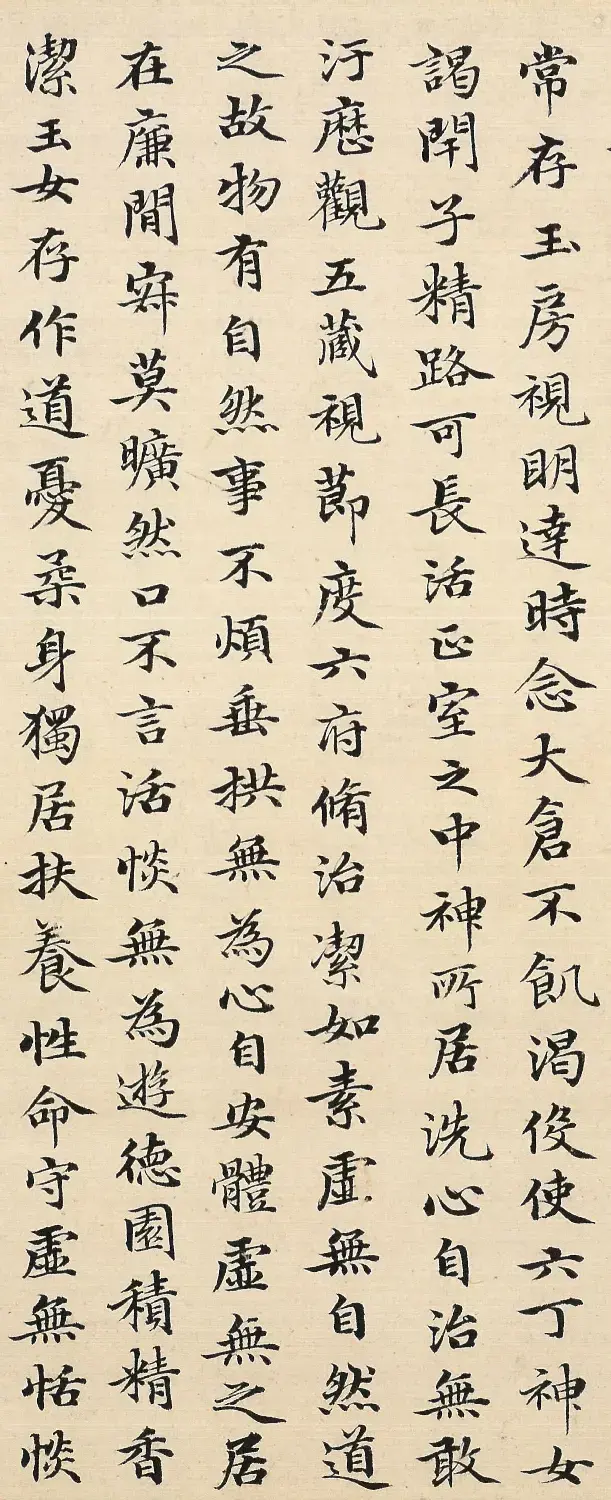 常存玉房視眀達時念大倉不飢渴伇使六丁神女
謁閇子精路可長活正室之中神所居洗心自治無敢
汙歷觀五藏視節度六府脩治潔如素虛無自然道
之故物有自然事不煩垂拱無為心自安體虛無之居
在廉間寂莫曠然口不言活惔無為遊德園積精香
潔玉女存作道憂柔身獨居扶養性命守虛無恬惔